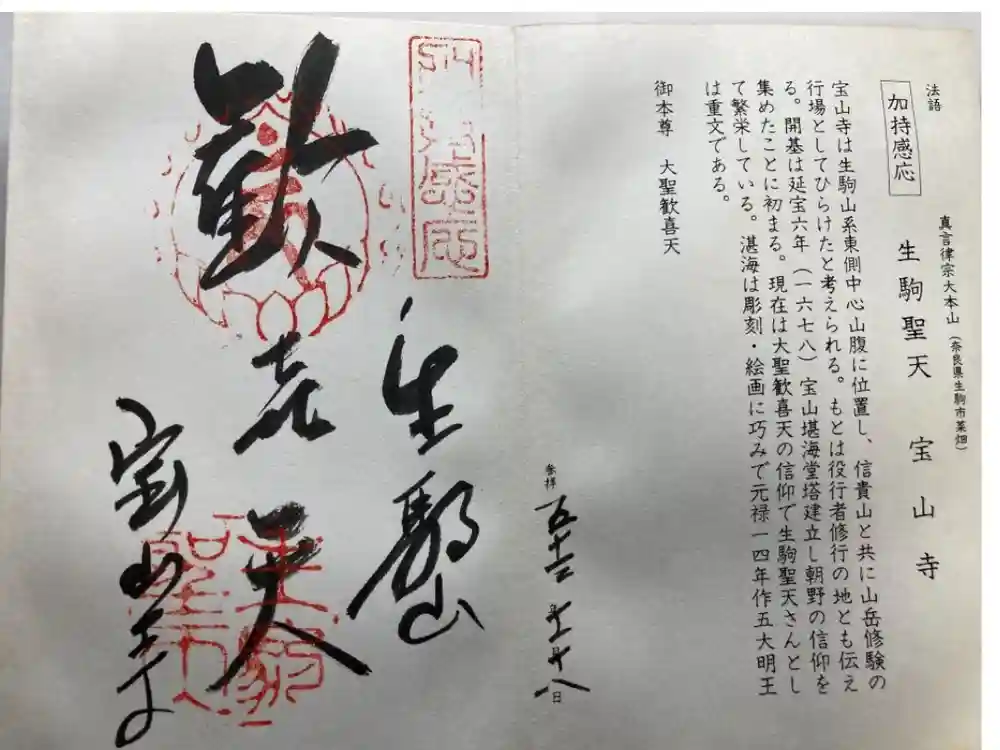 法語
加持感応
真言律宗大本山（奈良県生駒市菜畑）
生駒聖天　宝山寺
宝山寺は生駒山系東側中心山腹に位置し、信貴山と共に山岳修験の
行場としてひらけたと考えられる。もとは役行者修行の地とも伝え
る。開基は延宝六年（一六七八）宝山堪海堂塔建立し朝野の信仰を
集めたことに初まる。現在は大聖歓喜天の信仰で生駒聖天さんとし
て繁栄している。湛海は彫刻・絵画に巧みで元禄一四年作五大明王
は重文である。
御本尊　大聖歓喜天
参拝　五十二年十一月十八日
生駒山
歓喜天
宝山寺
生駒聖天